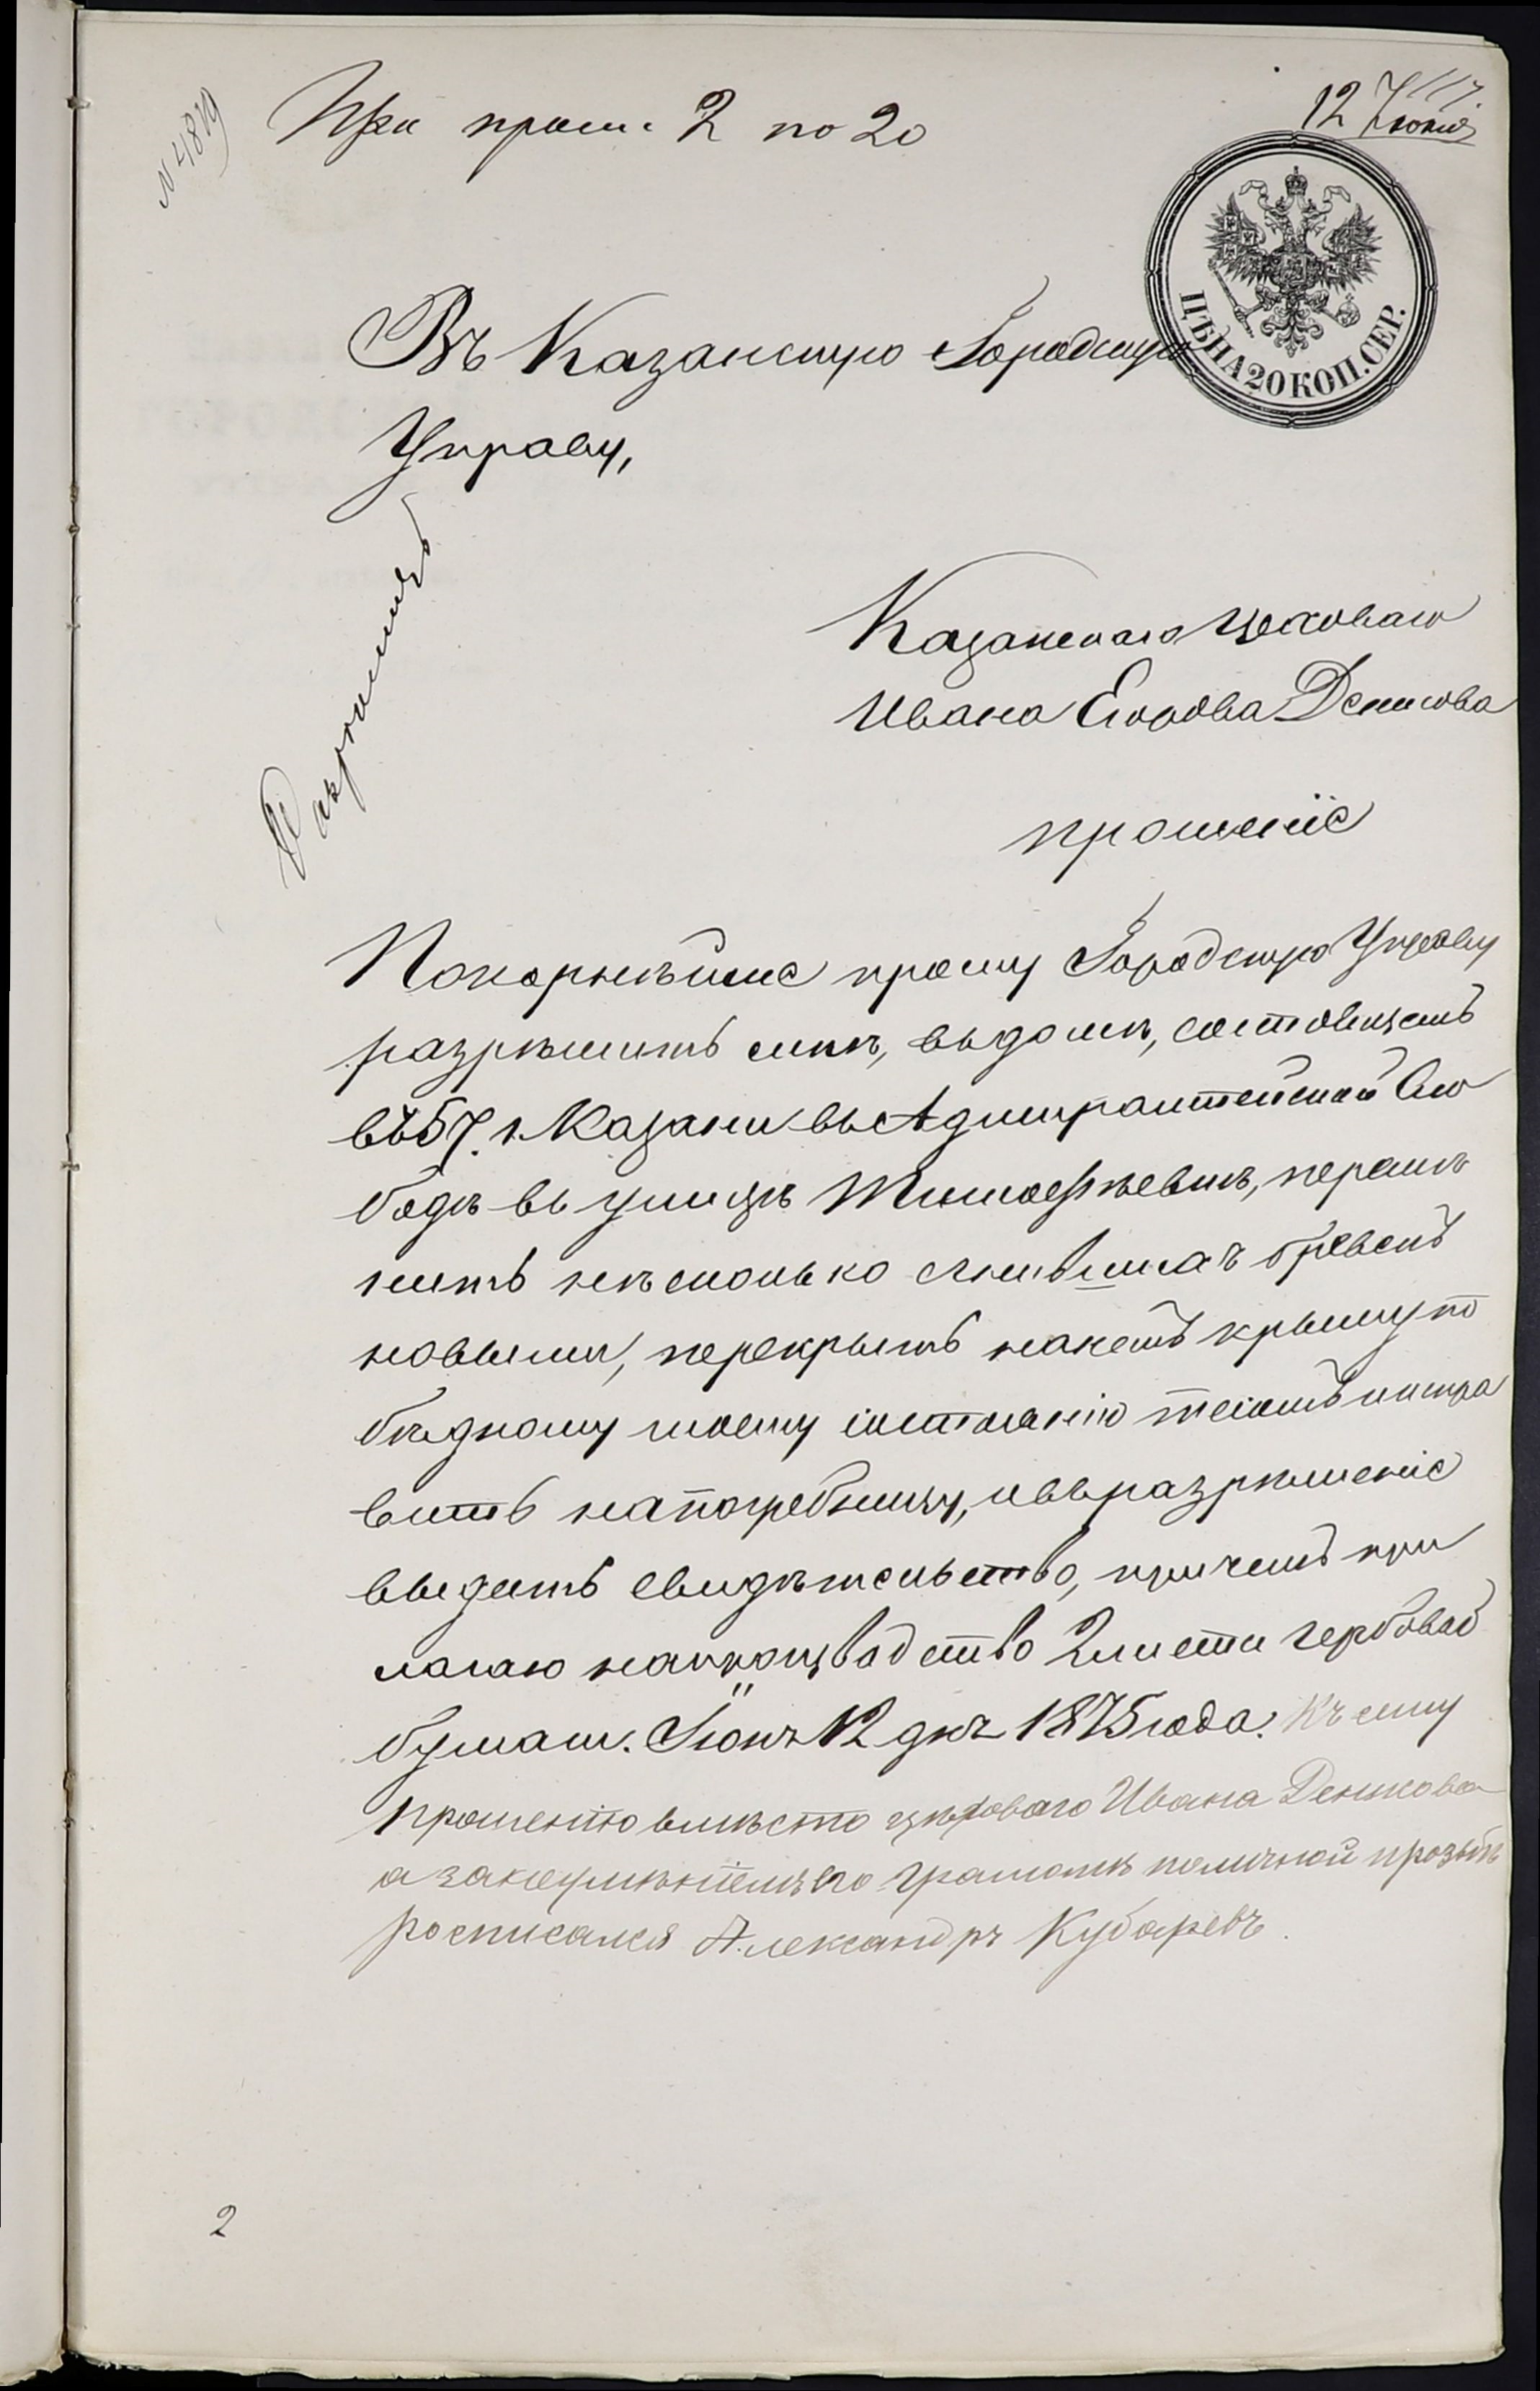 N 4819
При прош. 2 по 20
12 Іюня
ЦѢНА 20 КОП. СЕР.
Въ Казанскую Городскую
Управу,
Казанскаго Цеховаго
Ивана Егорова Денисова
прошеніе
Покорнѣйше прошу Городскую Управу
разрѣшить мнѣ, въ домѣ, состоящемъ
въ г. Казани въ Адмиралтейской Сло
бодѣ въ улицѣ перемѣ
нить нѣсколько сгнившихъ бревенъ
новыми, перекрыть на немъ крышу по
бѣдному моему состоянію тесомъ испра
вить напогребницу, и въ разрѣшеніе
выдать свидѣтельство, причемъ при
лагаю на производство 2 листа гербовой
бумаги. Іюнь 12 дня 1875 года. Къ сему
прошенію вмѣсто цеховаго Ивана Денисова
а за неумѣніемъ его грамотѣ по личной прозьбѣ
росписался Александръ Кубаревъ.
2